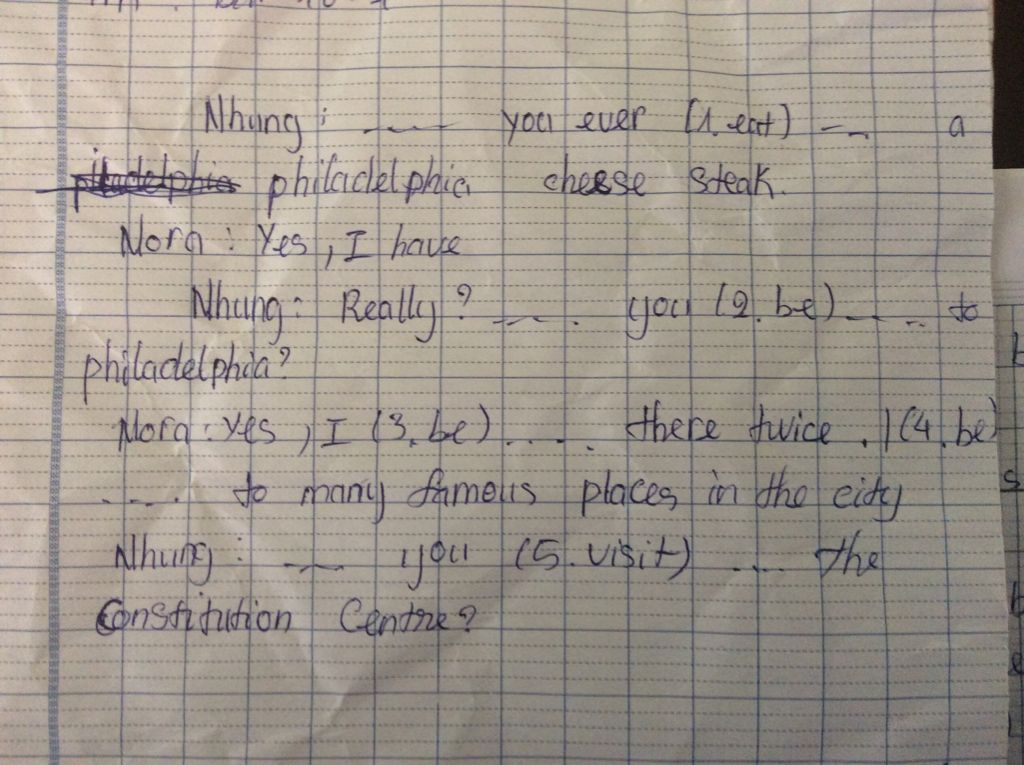 Nhung : ..... you ever (1. eat) ..... a
philadelphia cheese steak.
Nora : Yes, I have
Nhung : Really ? ..... you (2. be) ..... to
philadelphia?
Nora : Yes, I (3. be) ..... there twice. I (4. be)
..... to many famous places in the city
Nhung : ..... you (5. visit) ..... the
Constitution Centre?